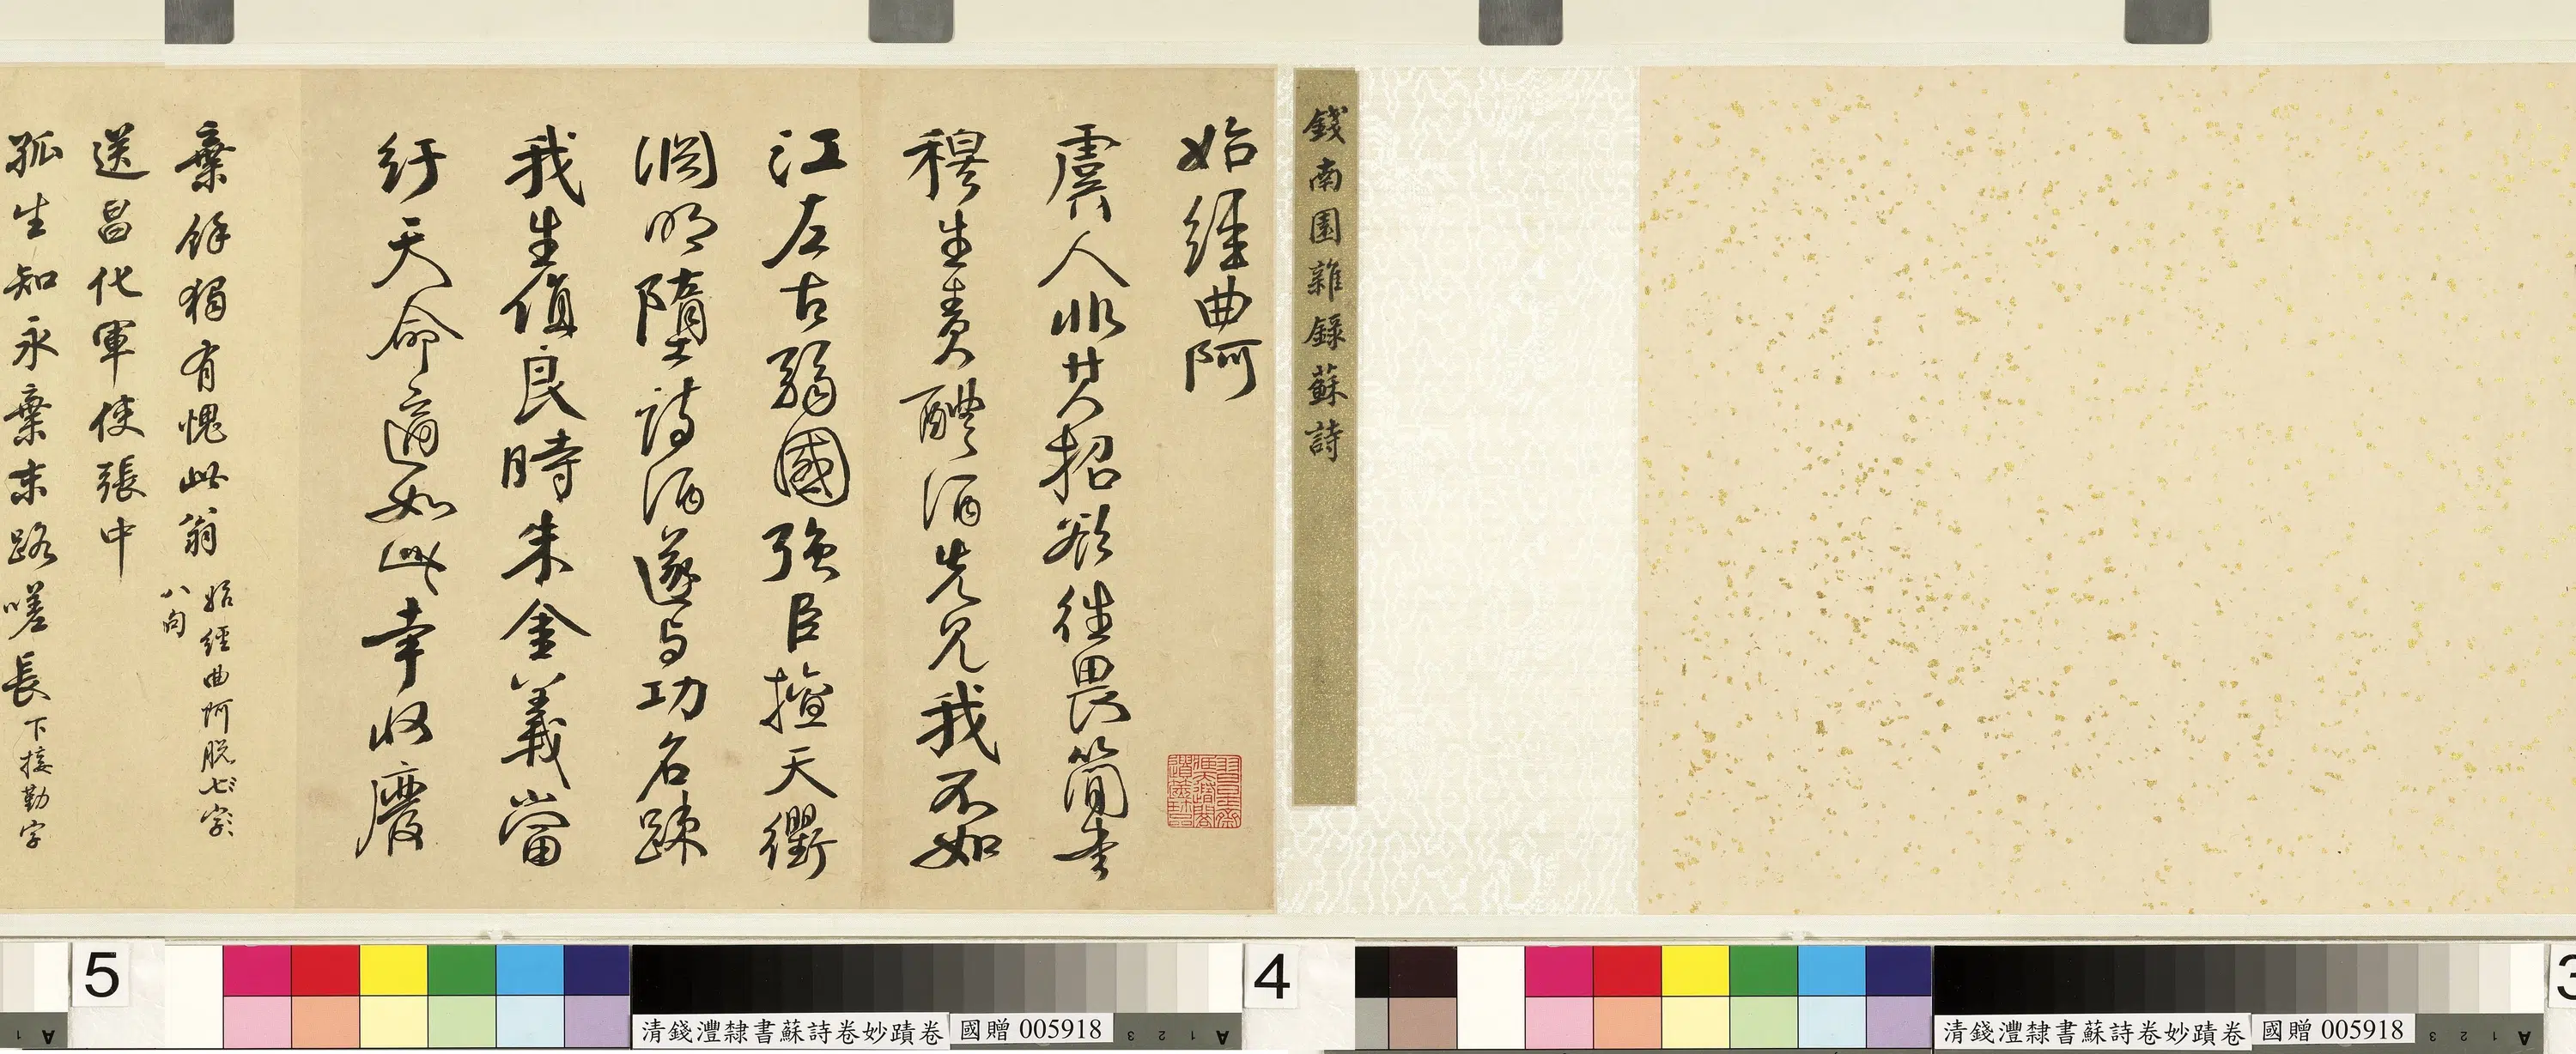 錢南園雜錄蘇詩
始經曲阿
虞人非其招欲往畏簡書
穆生責醴酒先見我不如
江左古弱國強臣擅天衢
淵明墮詩酒遂与功名疎
我生值良時朱金義當
紆天命適如此幸收廢
棄餘獨有愧此翁
始經曲阿脫七字
八句
送昌化軍使張中
孤生知永棄末路嗟長
下接勤字
3
清錢灃隸書蘇詩卷妙蹟卷 國贈 005918
4
清錢灃隸書蘇詩卷妙蹟卷 國贈 005918
5